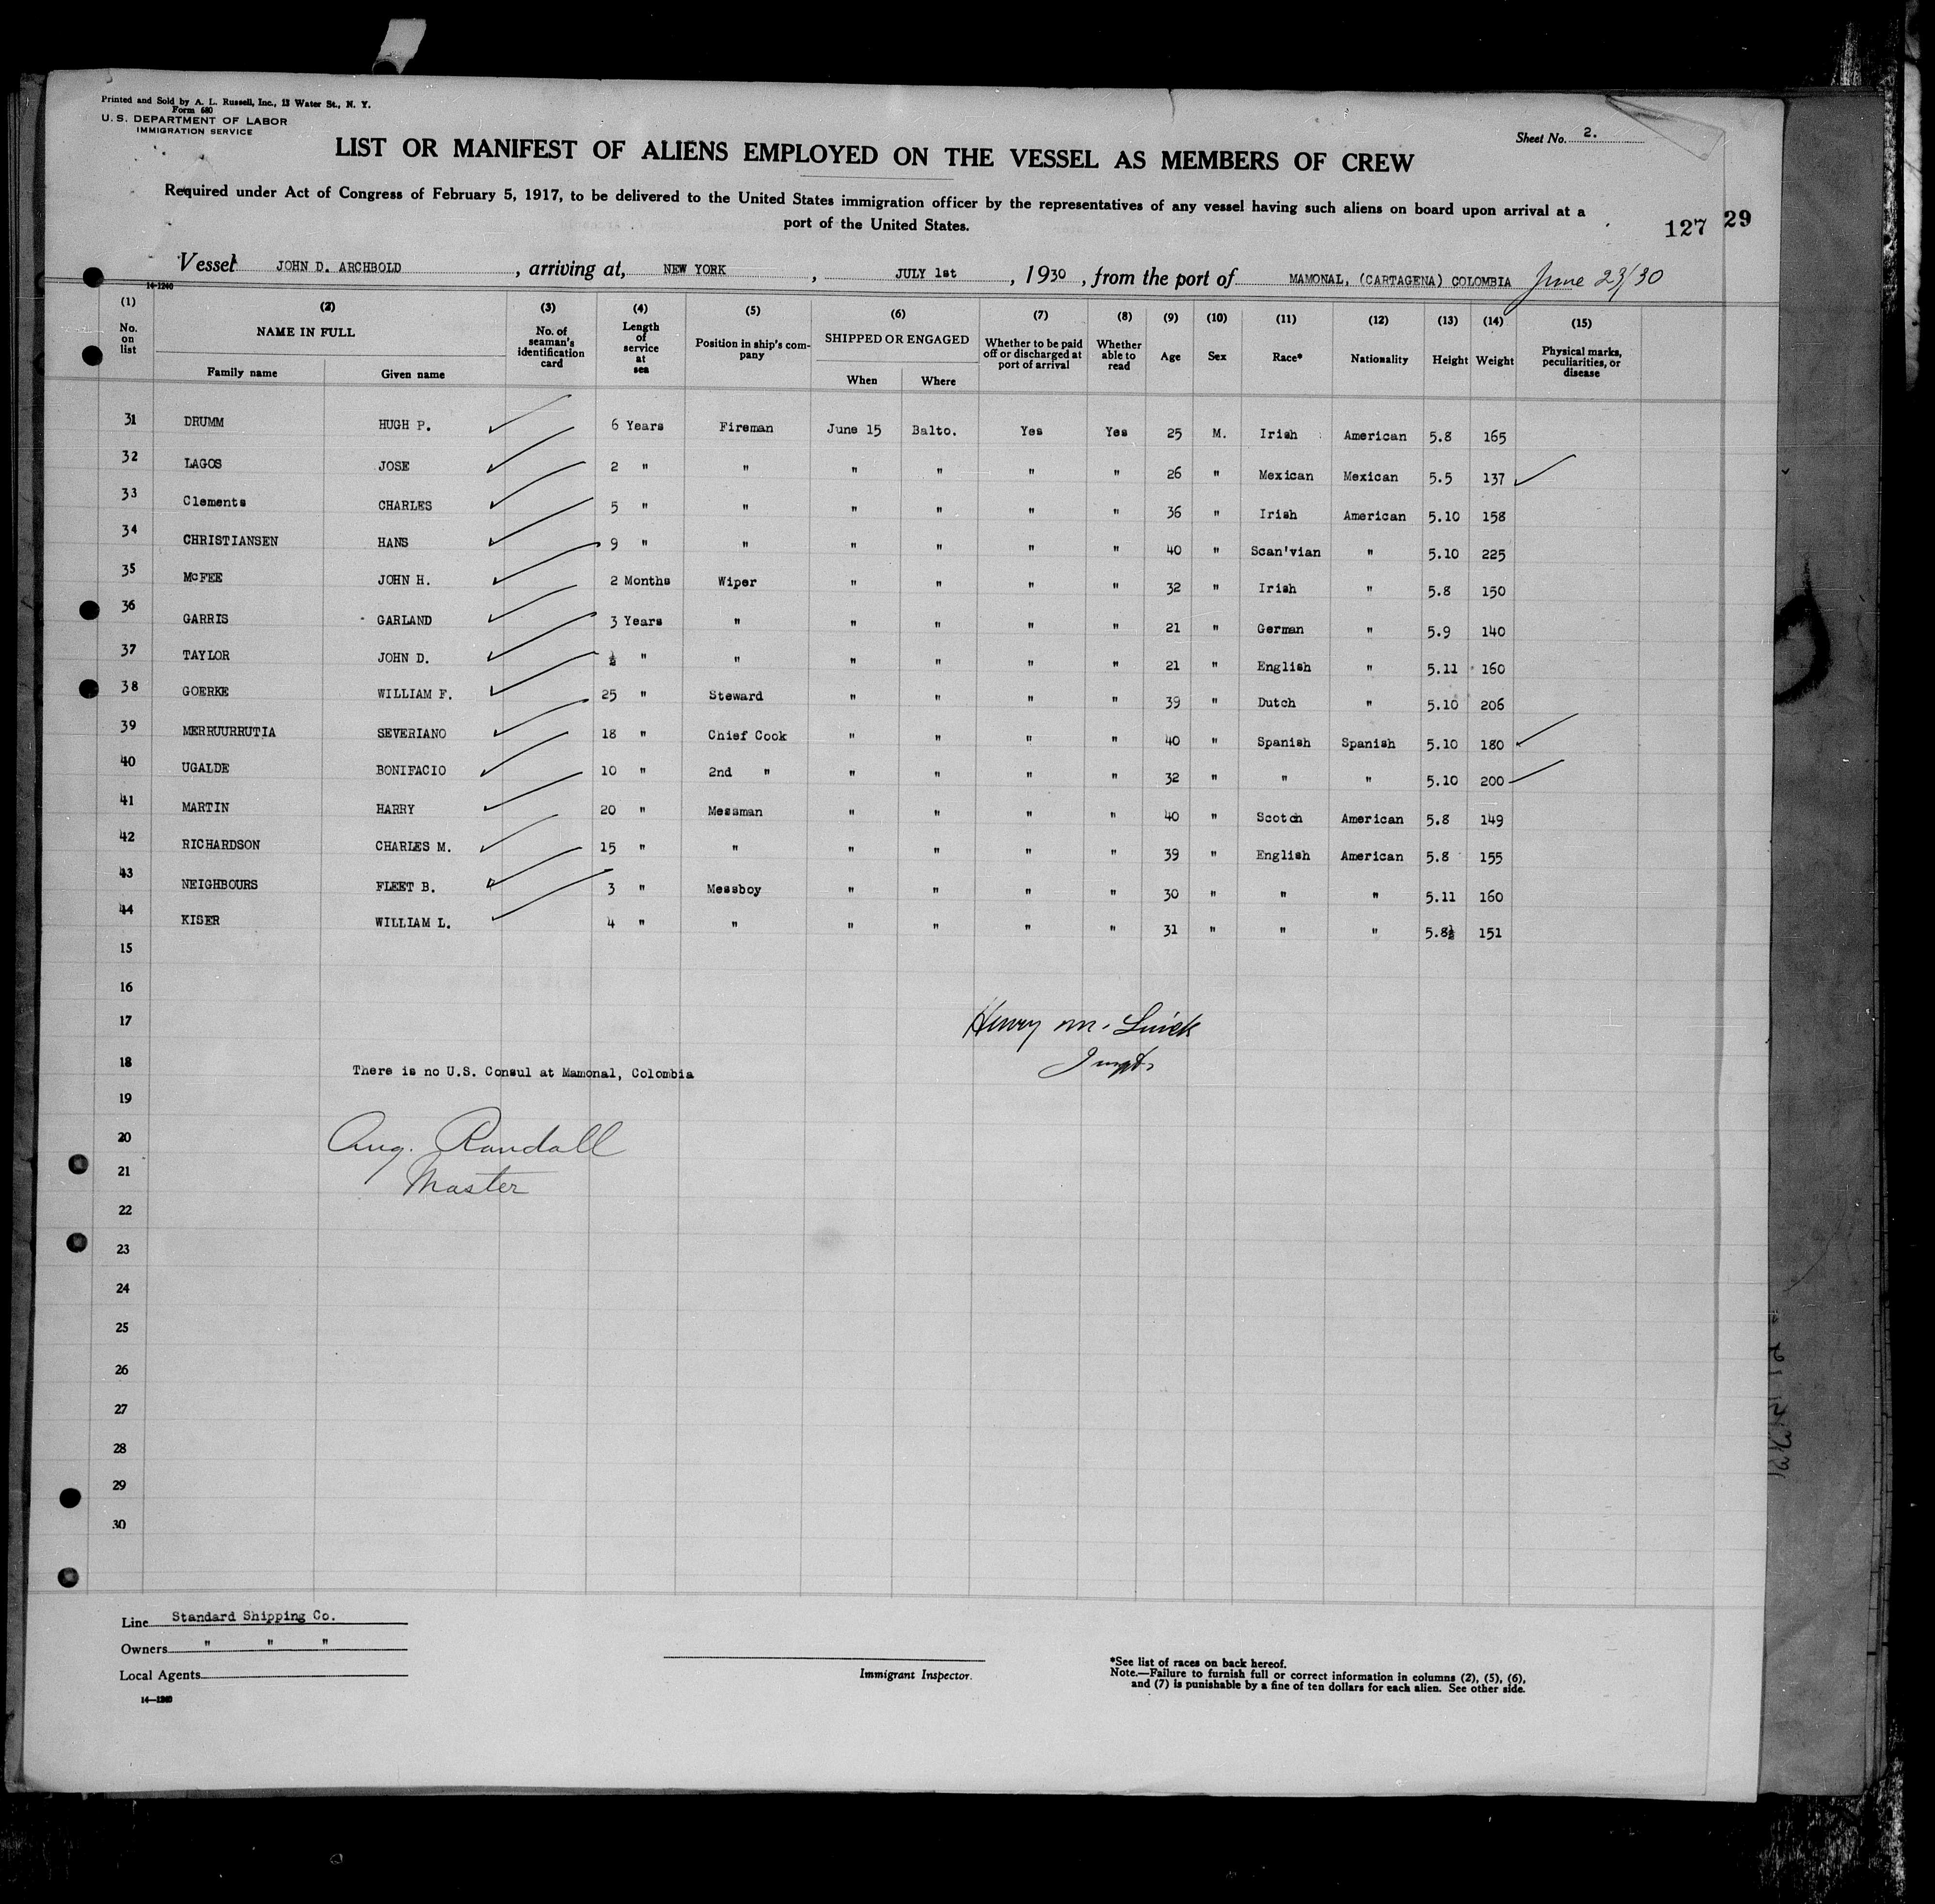 Printed and Sold by A. L. Russell, Inc., 13 Water St., N. Y.
Form 680
U. S. DEPARTMENT OF LABOR
IMMIGRATION SERVICE
Sheet No. 2.
LIST OR MANIFEST OF ALIENS EMPLOYED ON THE VESSEL AS MEMBERS OF CREW
Required under Act of Congress of February 5, 1917, to be delivered to the United States immigration officer by the representatives of any vessel having such aliens on board upon arrival at a
port of the United States.
127 29
Vessel JOHN D. ARCHBOLD, arriving at, NEW YORK, JULY 1st, 1930, from the port of MAMONAL, (CARTAGENA) COLOMBIA June 23/30
14-1240
(1) (2) (3) (4) (5) (6) (7) (8) (9) (10) (11) (12) (13) (14) (15)
No. on list NAME IN FULL No. of seaman's identification card Length of service at sea Position in ship's company SHIPPED OR ENGAGED Whether to be paid off or discharged at port of arrival Whether able to read Age Sex Race* Nationality Height Weight Physical marks, peculiarities, or disease
Family name Given name When Where
31 DRUMM HUGH P. 6 Years Fireman June 15 Balto. Yes Yes 25 M. Irish American 5.8 165
32 LAGOS JOSE 2 " " " " " " 26 " Mexican Mexican 5.5 137
33 Clements CHARLES 5 " " " " " " 36 " Irish American 5.10 158
34 CHRISTIANSEN HANS 9 " " " " " " 40 " Scan'vian " 5.10 225
35 McFEE JOHN H. 2 Months Wiper " " " " 32 " Irish " 5.8 150
36 GARRIS GARLAND 3 Years " " " " " 21 " German " 5.9 140
37 TAYLOR JOHN D. ½ " " " " " " 21 " English " 5.11 160
38 GOERKE WILLIAM F. 25 " Steward " " " " 39 " Dutch " 5.10 206
39 MERRUURRUTIA SEVERIANO 18 " Chief Cook " " " " 40 " Spanish Spanish 5.10 180
40 UGALDE BONIFACIO 10 " 2nd " " " " " 32 " " " 5.10 200
41 MARTIN HARRY 20 " Messman " " " " 40 " Scotch American 5.8 149
42 RICHARDSON CHARLES M. 15 " " " " " " 39 " English American 5.8 155
43 NEIGHBOURS FLEET B. 3 " Messboy " " " " 30 " " " 5.11 160
44 KISER WILLIAM L. 4 " " " " " " 31 " " " 5.8½ 151
15
16
17 Henry M.
18 There is no U.S. Consul at Mamonal, Colombia
19
20 Aug. Randall
21 Master
22
23
24
25
26
27
28
29
30
Line Standard Shipping Co.
Owners " " "
Local Agents
14-1240
Immigrant Inspector.
*See list of races on back hereof.
Note.—Failure to furnish full or correct information in columns (2), (5), (6),
and (7) is punishable by a fine of ten dollars for each alien. See other side.